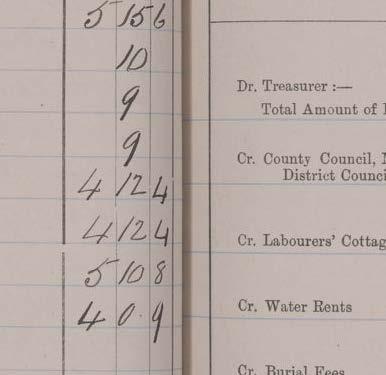 5 15 6
10
9
9
4 12 4
4 12 4
5 10 8
4 0 9
Dr. Treasurer :—
Total Amount of
Cr. County Council,
District Counci
Cr. Labourers' Cottag
Cr. Water Rents
Cr. Burial Fees